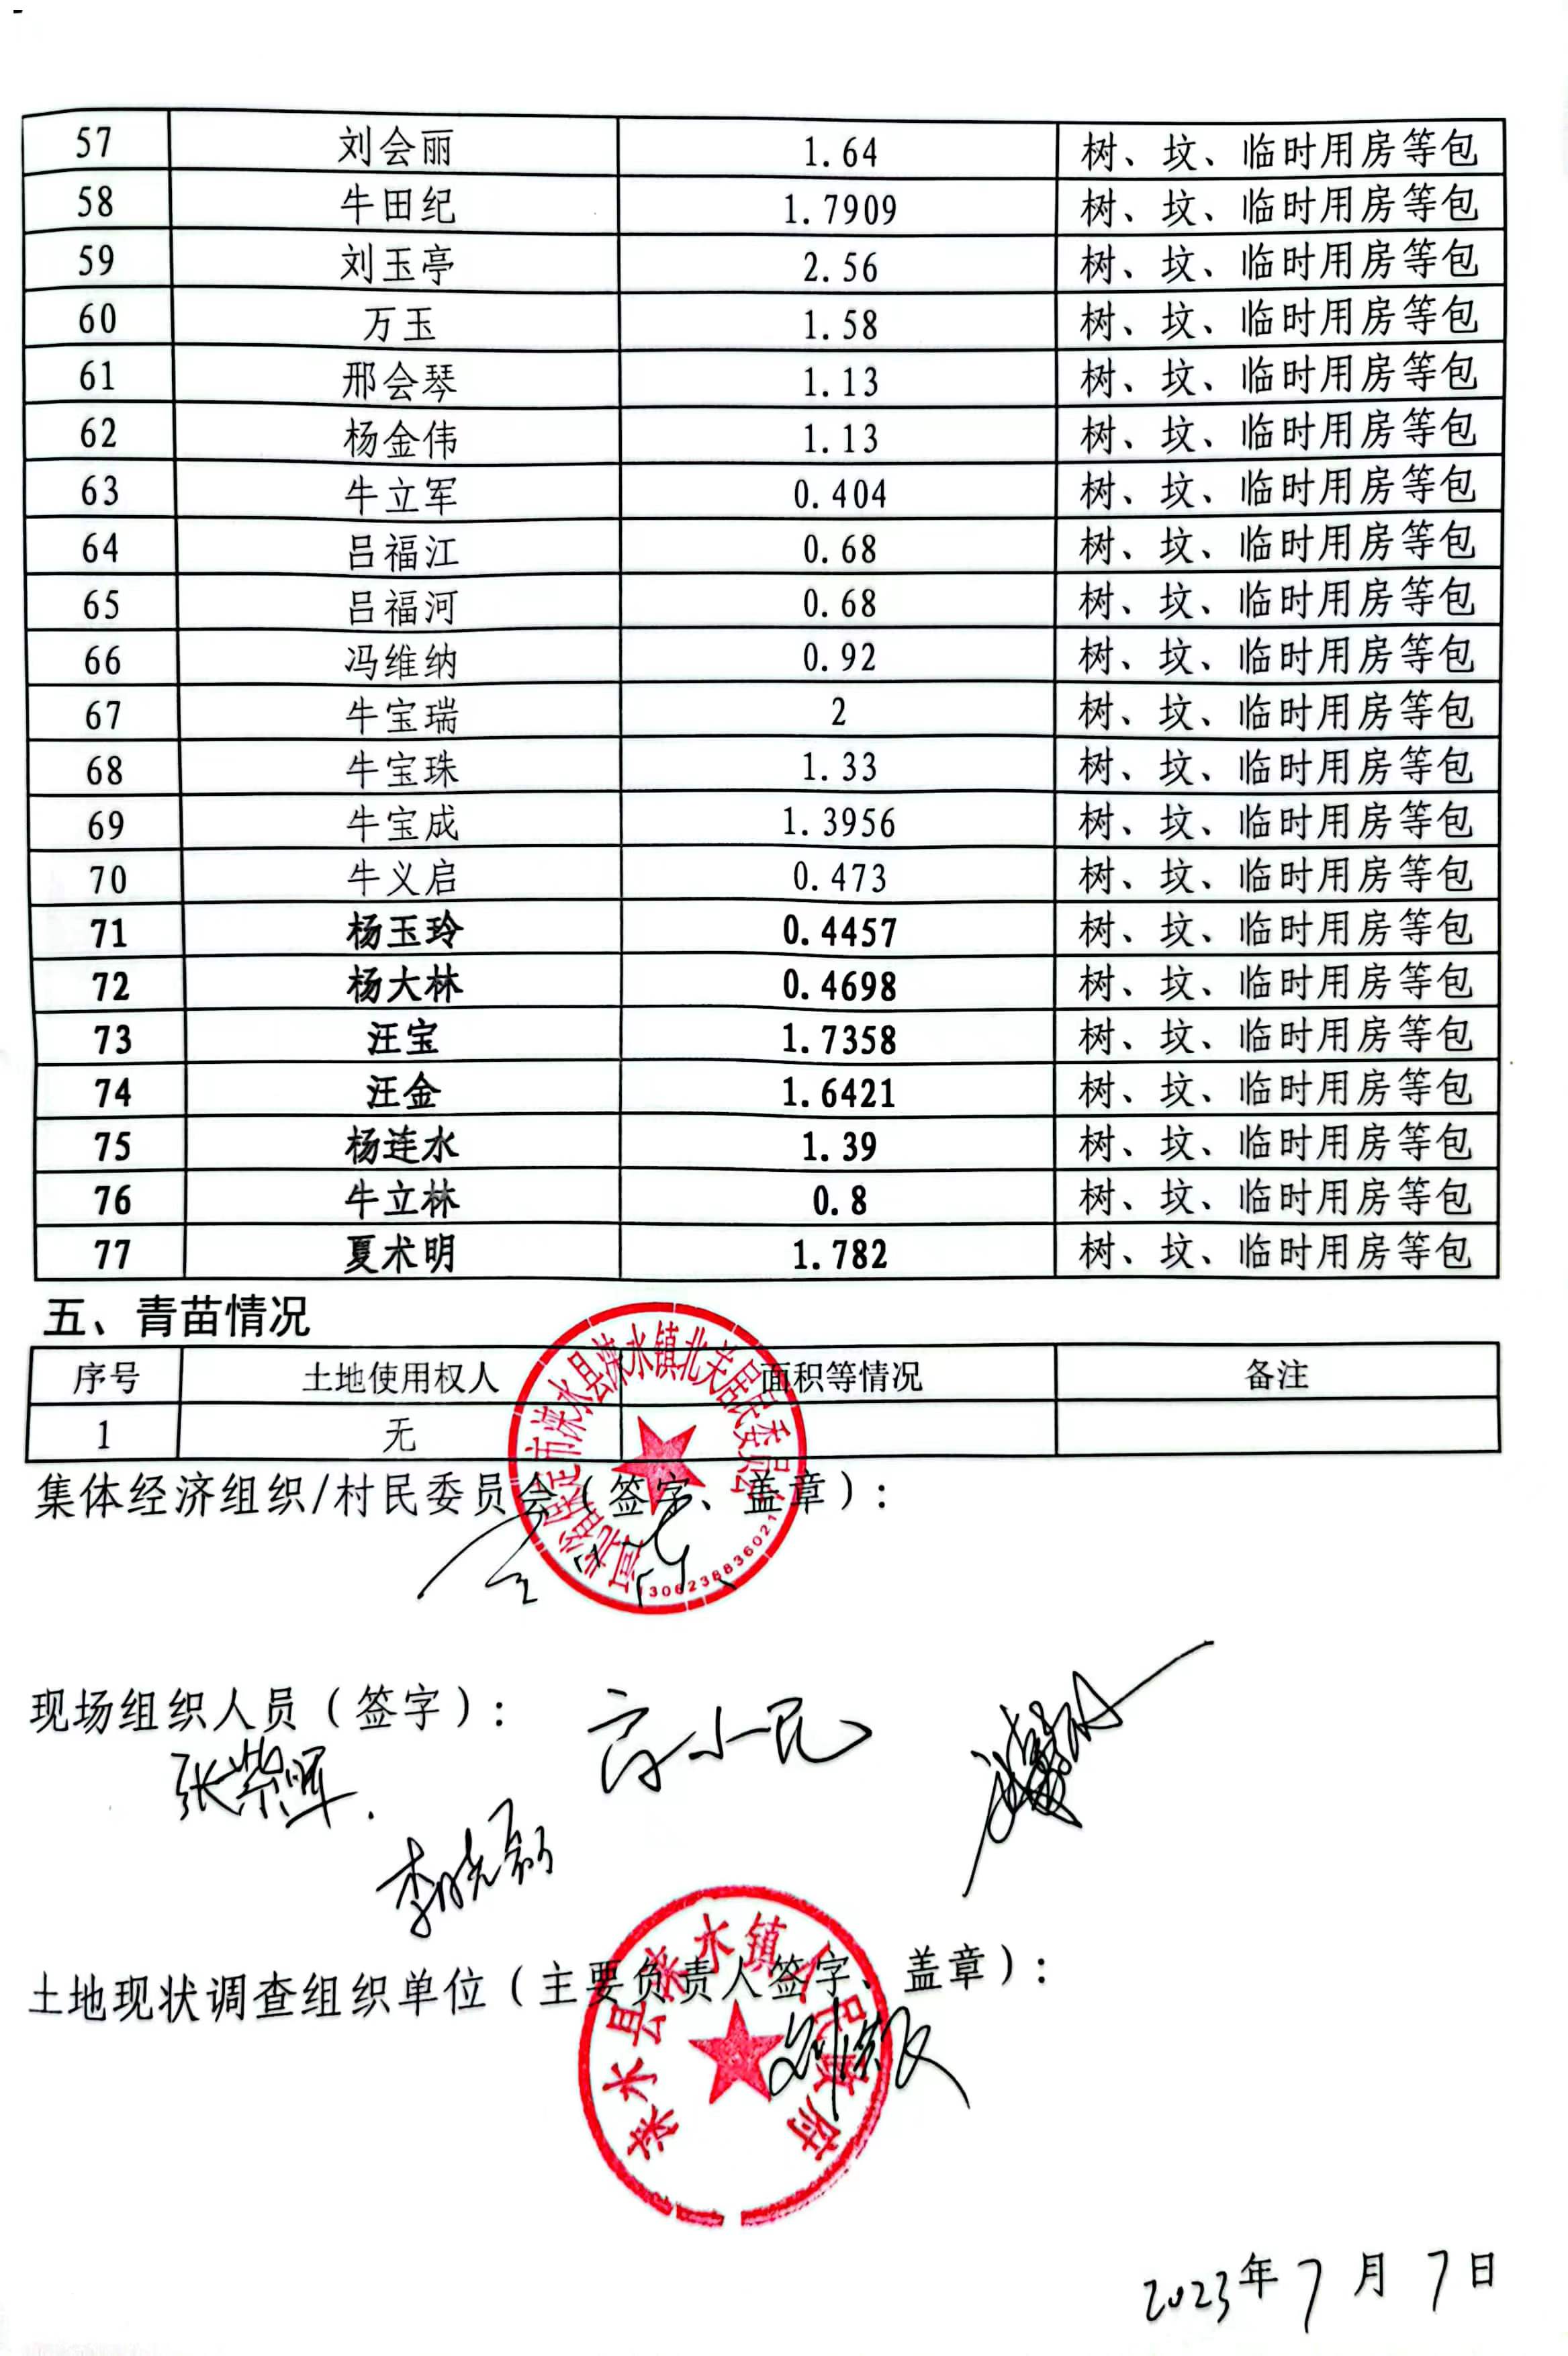 57 刘会丽 1.64 树、坟、临时用房等包
58 牛田纪 1.7909 树、坟、临时用房等包
59 刘玉亭 2.56 树、坟、临时用房等包
60 万玉 1.58 树、坟、临时用房等包
61 邢会琴 1.13 树、坟、临时用房等包
62 杨金伟 1.13 树、坟、临时用房等包
63 牛立军 0.404 树、坟、临时用房等包
64 吕福江 0.68 树、坟、临时用房等包
65 吕福河 0.68 树、坟、临时用房等包
66 冯维纳 0.92 树、坟、临时用房等包
67 牛宝瑞 2 树、坟、临时用房等包
68 牛宝珠 1.33 树、坟、临时用房等包
69 牛宝成 1.3956 树、坟、临时用房等包
70 牛义启 0.473 树、坟、临时用房等包
71 杨玉玲 0.4457 树、坟、临时用房等包
72 杨大林 0.4698 树、坟、临时用房等包
73 汪宝 1.7358 树、坟、临时用房等包
74 汪金 1.6421 树、坟、临时用房等包
75 杨连水 1.39 树、坟、临时用房等包
76 牛立林 0.8 树、坟、临时用房等包
77 夏术明 1.782 树、坟、临时用房等包
五、青苗情况
序号 土地使用权人 面积等情况 备注
1 无
河北省保定市涞水县涞水镇北关居民委员会
1306238836021
集体经济组织/村民委员会（签字、盖章）：
现场组织人员（签字）：
高小民
张紫晖
李晓磊
土地现状调查组织单位（主要负责人签字、盖章）：
涞水县涞水镇人民政府
2023年7月7日